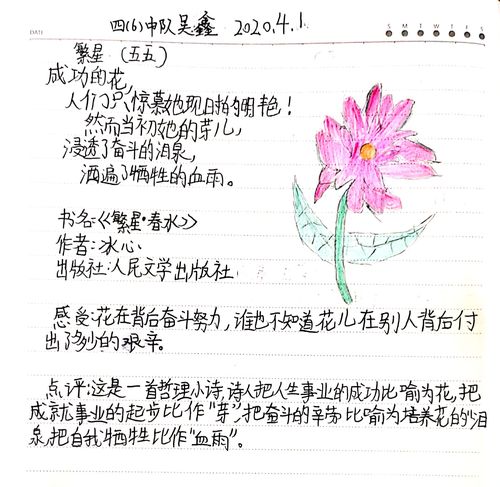 四(6)中队吴鑫 2020.4.1
DATE
S M T W T F S
繁星(五五)
成功的花,
人们只惊慕她现时的明艳!
然而当初她的芽儿,
浸透了奋斗的泪泉,
洒遍了牺牲的血雨。
书名:《繁星·春水》
作者:冰心
出版社:人民文学出版社
感受:花在背后奋斗努力,谁也不知道花儿在别人背后付
出了多少的艰辛。
点评:这是一首哲理小诗,诗人把人生事业的成功比喻为花,把
成就事业的起步比作“芽”,把奋斗的辛劳比喻为培养花的“泪
泉,把自我牺牲比作“血雨”。